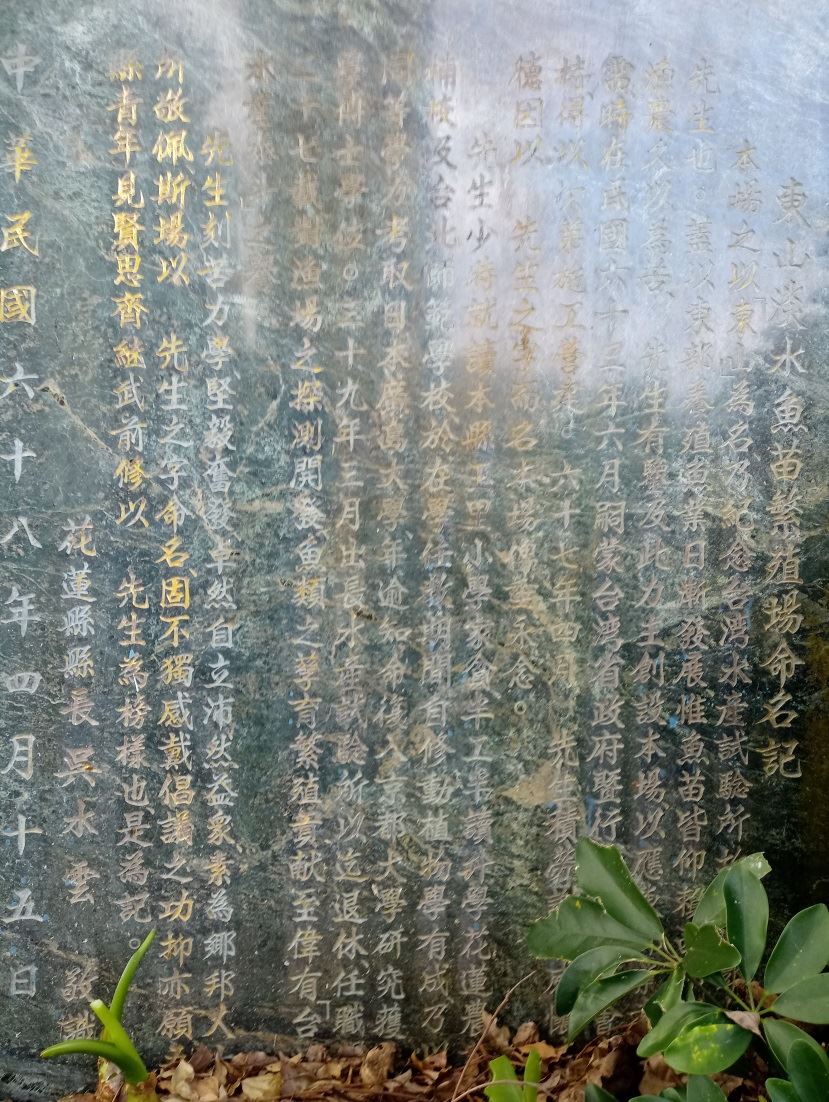 東山淡水魚苗繁殖場命名記
本場之以「東山」為名乃紀念台灣水產試驗所
先生也。蓋以東部養殖魚業日漸發展惟魚苗皆仰
漁農久以為苦、先生有鑒及此力主創設本場以應
需時在民國六十三年六月嗣蒙台灣省政府
得以 施工 六十七年四月 先生積勞
德因以 先生之字而名本場 永念。
先生少時就讀本縣玉里小學家貧半工半讀升學花蓮農
補校及台北師範學校於在學任教期間自修動植物學有成乃
同等學力考取日本廣島大學年逾知命復入京都大學研究獲
農學博士學位。三十九年三月出長水產試驗所以迄退休任職
二十七載對漁場之探測開發魚類之孳育繁殖貢献至偉有「台
水產
先生刻苦力學堅毅奮發卓然自立沛然益眾素為鄉邦人
所敬佩斯場以 先生之字命名固不獨感戴倡議之功抑亦願
縣青年見賢思齊繼武前修以 先生為榜樣也是為記。
花蓮縣縣長吳水雲 敬識
中華民國六十八年四月十五日